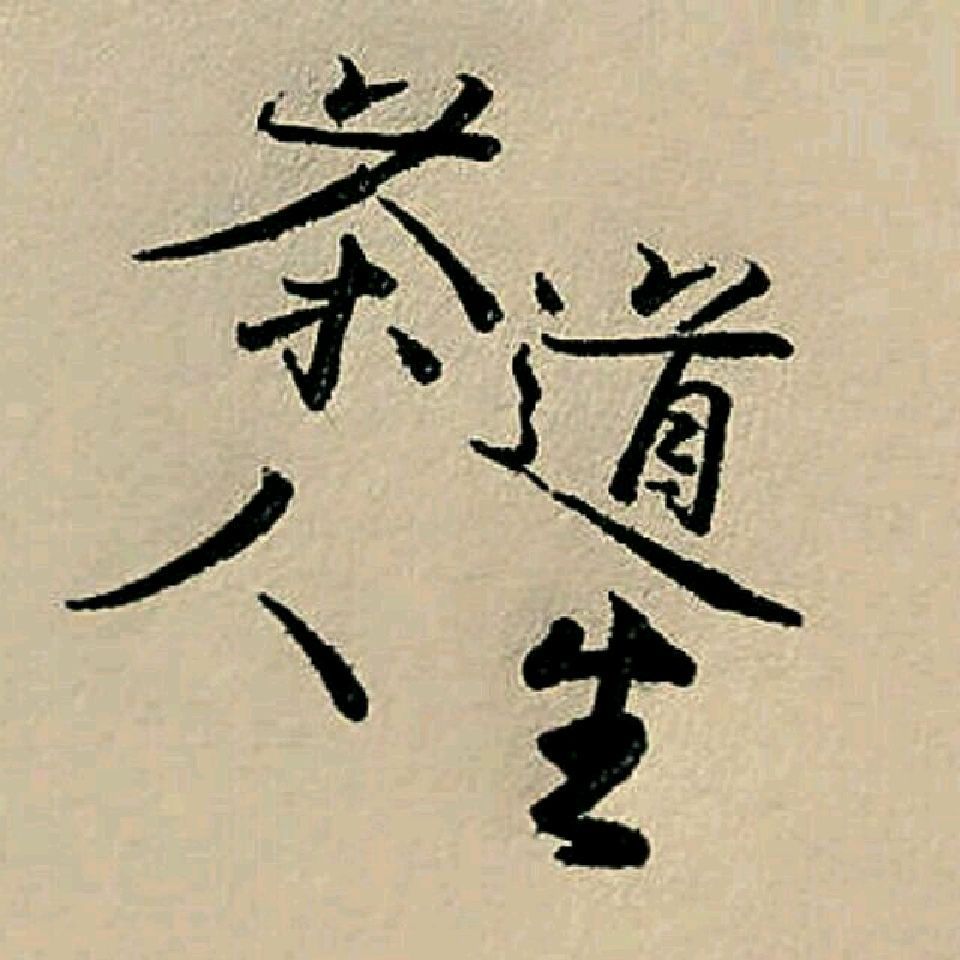 道生
茶人